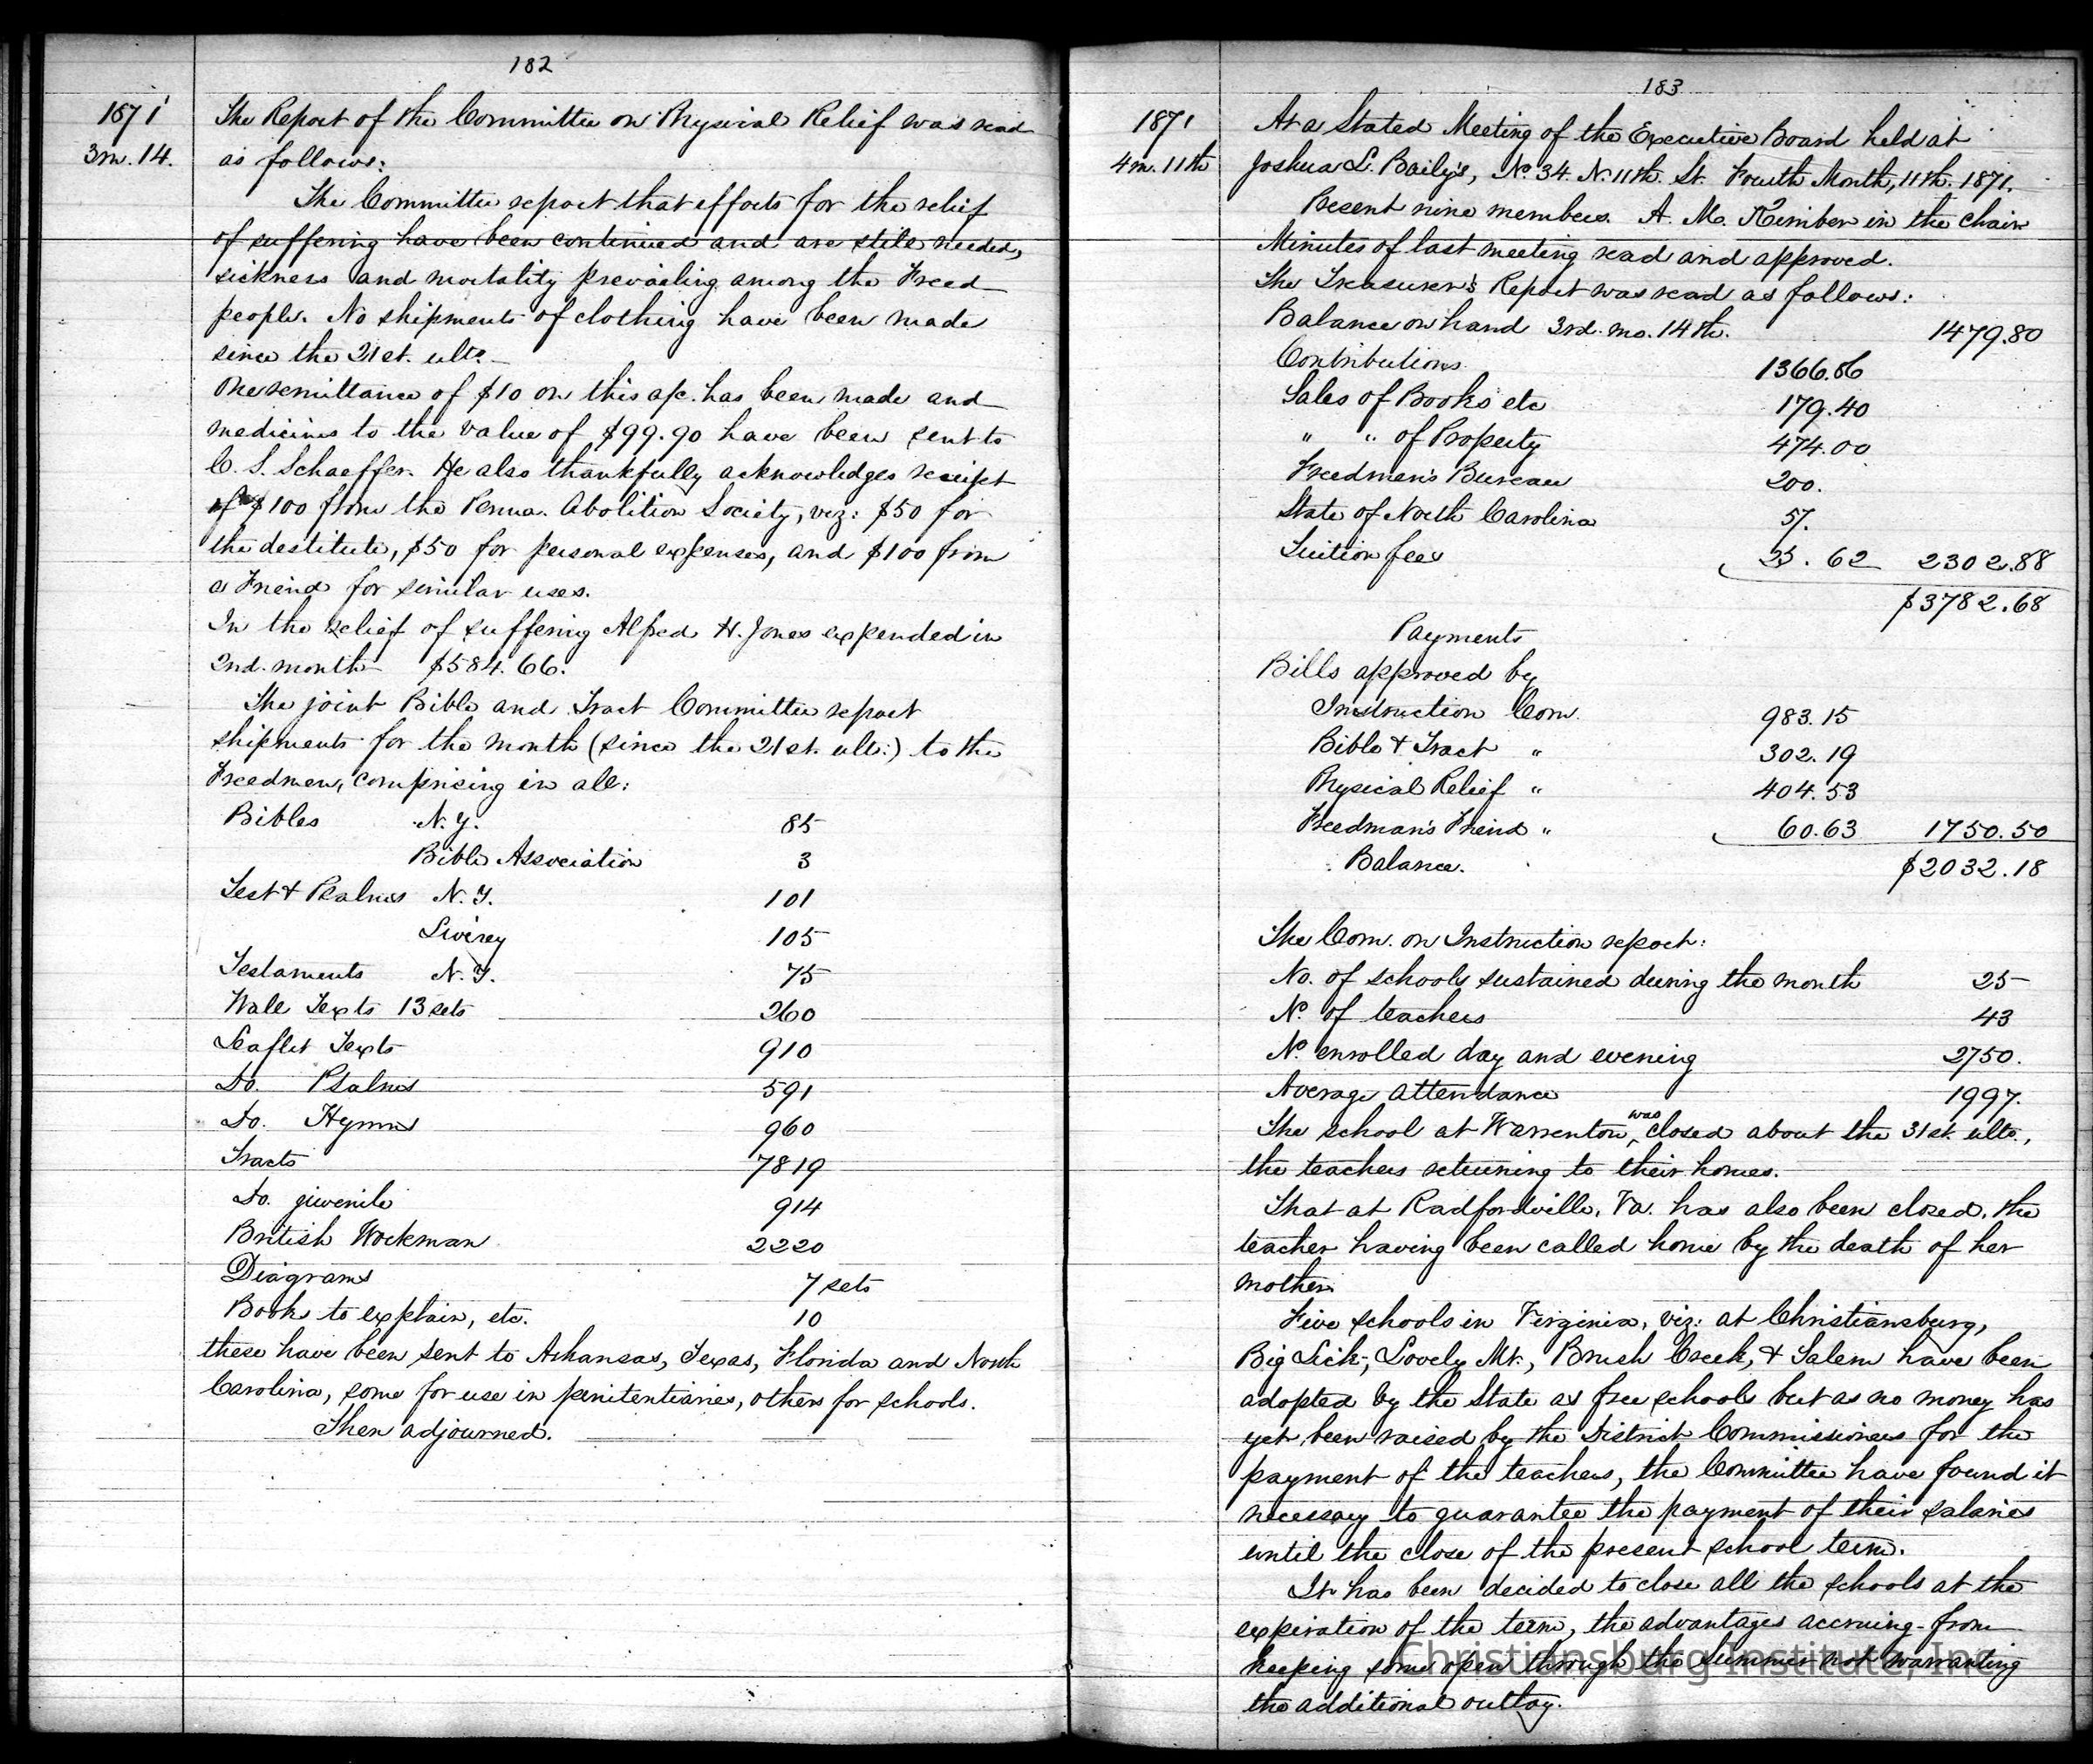 182
1871
3m. 14.
The Report of the Committee on Physical Relief was read
as follows:
The Committee report that efforts for the relief
of suffering have been continued and are still needed,
sickness and mortality prevailing among the Freed
people. No shipments of clothing have been made
since the 21st. ulto.
One remittance of $10 on this a/c. has been made and
medicines to the value of $99.90 have been sent to
C. S. Schaeffer. He also thankfully acknowledges receipt
of $100 from the Penna. Abolition Society, viz: $50 for
the destitute, $50 for personal expenses, and $100 from
a Friend for similar uses.
In the relief of suffering Alfred H. Jones expended in
2nd. month $584.66.
The joint Bible and Tract Committee report
shipments for the month (since the 21st. ult:) to the
Freedmen, comprising in all:
Bibles N.Y. 85
Bible Association 3
Test & Psalms N.Y. 101
Livesey 105
Testaments N.Y. 75
Wall Texts 13 sets 260
Leaflet Texts 910
Do. Psalms 591
Do. Hymns 960
Tracts 7819
Do. juvenile 914
British Workman 2220
Diagrams 7 sets
Books to explain, etc. 10
these have been sent to Arkansas, Texas, Florida and North
Carolina, some for use in penitentiaries, others for schools.
Then adjourned.
183
1871
4m. 11th
At a Stated Meeting of the Executive Board held at
Joshua L. Baily's, No. 34. N. 11th. St. Fourth Month, 11th. 1871.
Present nine members. A. M. Kimber in the chair
Minutes of last meeting read and approved.
The Treasurer's Report was read as follows:
Balance on hand 3rd. mo. 14th. 1479.80
Contributions 1366.86
Sales of Books etc 179.40
" " of Property 474.00
Freedmen's Bureau 200.
State of North Carolina 57.
Tuition fees 25.62 2302.88
$3782.68
Payments
Bills approved by
Instruction Com. 983.15
Bible & Tract " 302.19
Physical Relief " 404.53
Freedman's Friend " 60.63 1750.50
Balance. $2032.18
The Com. on Instruction report:
No. of schools sustained during the month 25
No. of teachers 43
No. enrolled day and evening 2750.
Average attendance 1997.
The school at Warrenton was closed about the 31st. ulto.,
the teachers returning to their homes.
That at Radfordville, Va. has also been closed, the
teacher having been called home by the death of her
mother.
Five schools in Virginia, viz: at Christiansburg,
Big Lick, Lovely Mt., Brush Creek, & Salem have been
adopted by the State as free schools but as no money has
yet been raised by the District Commissioners for the
payment of the teachers, the Committee have found it
necessary to guarantee the payment of their salaries
until the close of the present school term.
It has been decided to close all the schools at the
expiration of the term, the advantages accruing from
keeping some open through the Summer not warranting
the additional outlay.
Christiansburg Institute, Inc.